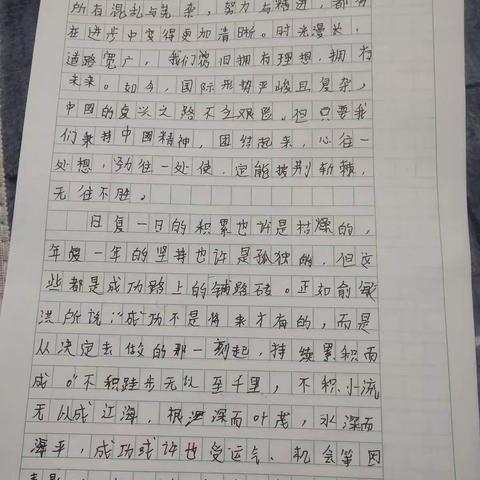 所有混乱与芜杂，努力与精进，都将
在进步中变得更加清晰。时光漫长，
道路宽广，我们依旧拥有理想，拥有
未来。如今，国际形势严峻且复杂，
中国的复兴之路不乏艰险。但只要我
们秉持中国精神，团结起来，心往一
处想，劲往一处使，定能披荆斩棘，
无往不胜。
日复一日的积累也许是枯燥的，
年复一年的坚持也许是孤独的，但这
些都是成功路上的铺路砖。正如俞敏
洪所说：“成功不是将来才有的，而是
从决定去做的那一刻起，持续累积而
成。”不积跬步无以至千里，不积小流
无以成江海，根深而叶茂，水深而
海平，成功或许也受运气、机会等因
素影